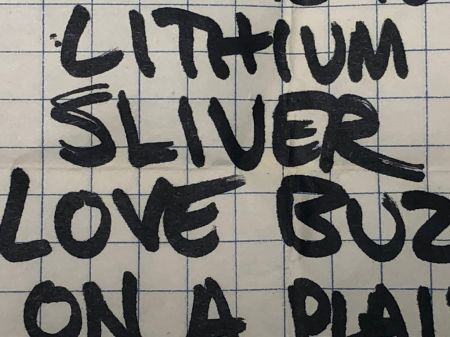 LITHIUM
SLIVER
LOVE BUZ
ON A PLAI